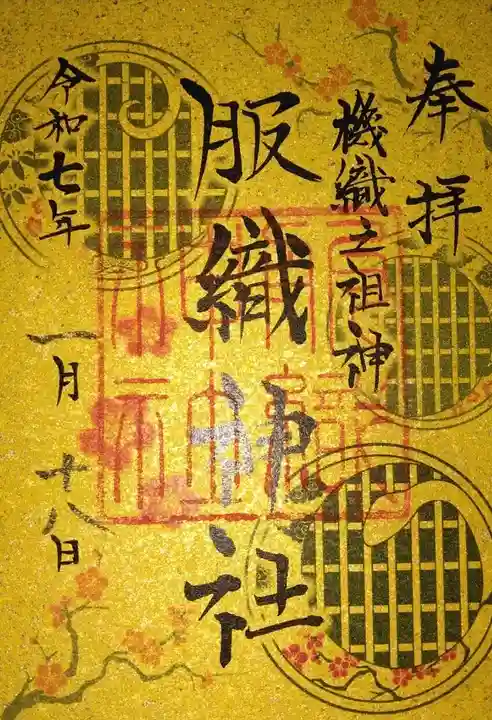 奉拝
機織之祖神
服織神社
令和七年
一月十八日